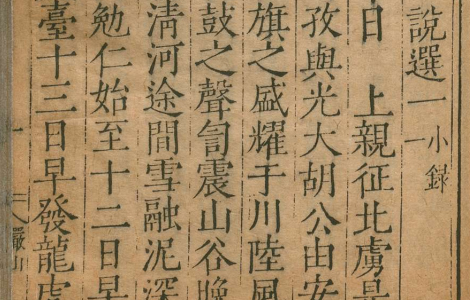 說選一 小錄一
日　上親征北虜是
孜與光大胡公由安
旗之盛耀于川陸風
鼓之聲訇震山谷晚
清河途間雪融泥深
勉仁始至十二日早
臺十三日早發龍虎
一
儼山